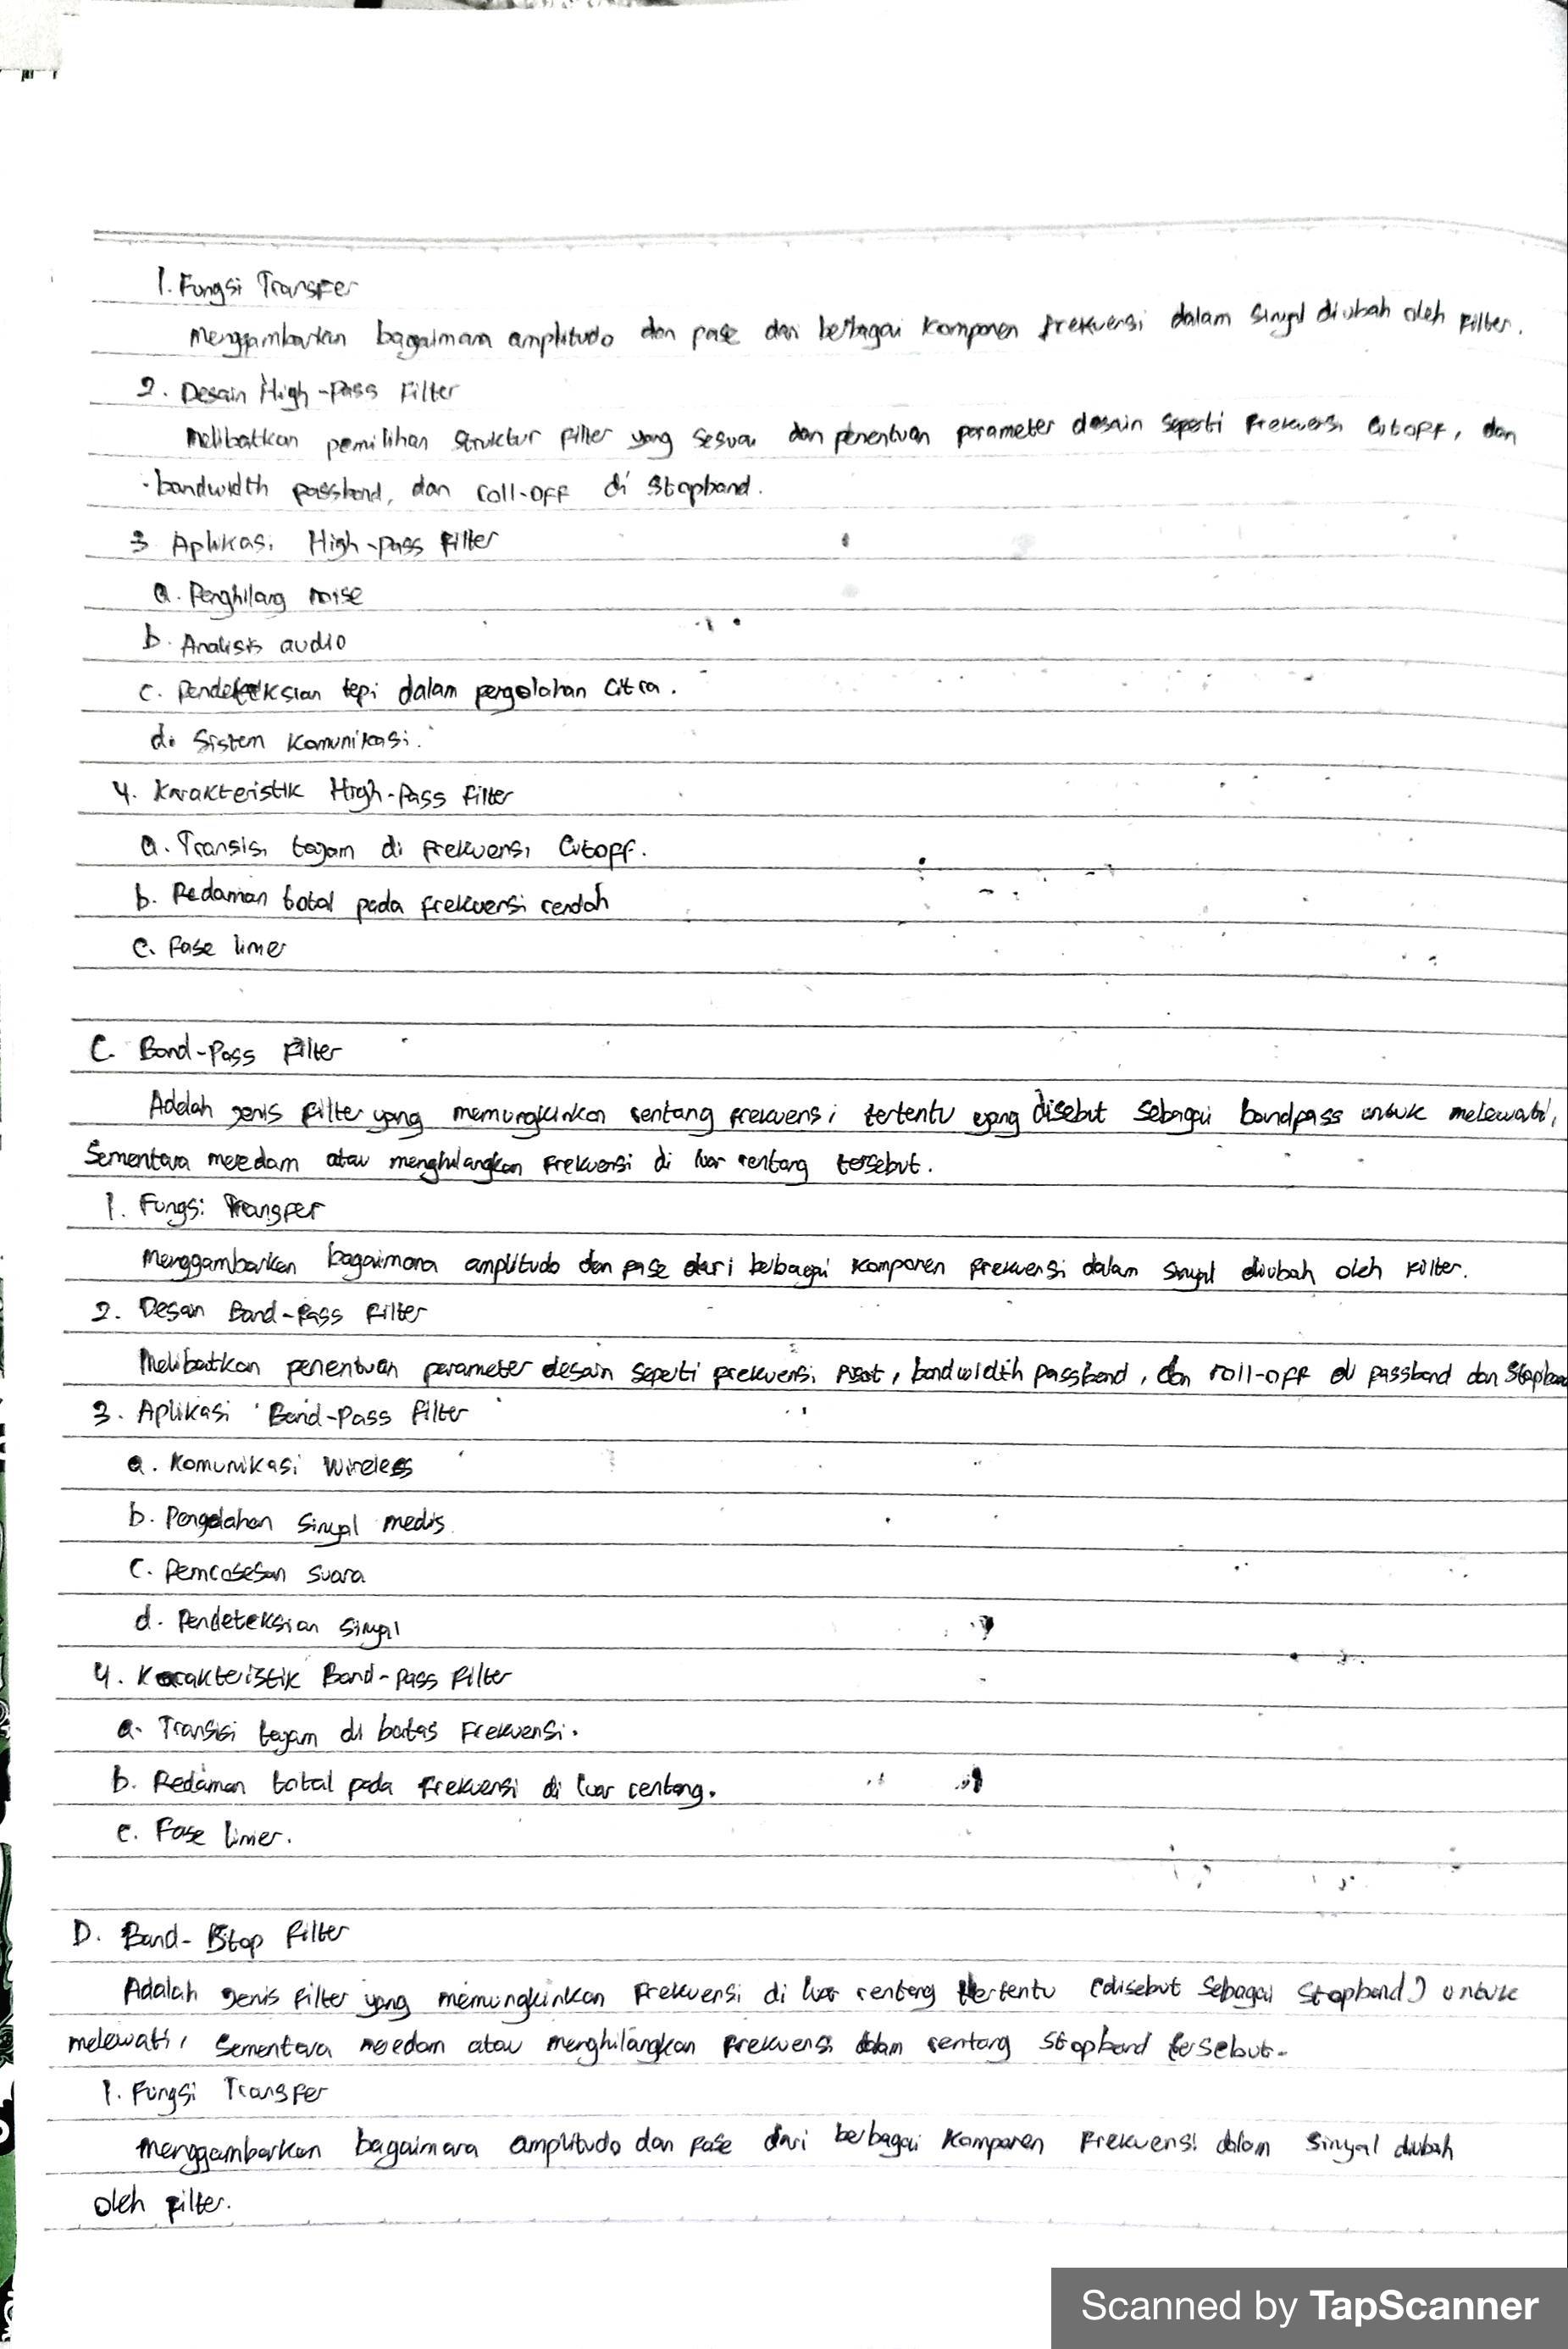 1. Fungsi Transfer
Menggambarkan bagaimana amplitudo dan fase dari berbagai komponen frekuensi dalam sinyal diubah oleh filter.
2. Desain High-Pass Filter
Melibatkan pemilihan struktur filter yang sesuai dan penentuan parameter desain seperti frekuensi cutoff, dan
bandwidth passband, dan roll-off di stopband.
3 Aplikasi High-pass filter
a. Penghilang noise
b. Analisis audio
c. Pendeteksian tepi dalam pengolahan citra.
d. Sistem komunikasi.
4. Karakteristik High-Pass filter
a. Transisi tajam di frekuensi Cutoff.
b. Redaman total pada frekuensi rendah
c. Fase linier
C. Band-Pass filter
Adalah jenis filter yang memungkinkan rentang frekuensi tertentu yang disebut sebagai bandpass untuk melewati,
Sementara meredam atau menghilangkan frekuensi di luar rentang tersebut.
1. Fungsi Transfer
Menggambarkan bagaimana amplitudo dan fase dari berbagai komponen frekuensi dalam sinyal diubah oleh filter.
2. Desain Band-Pass Filter
Melibatkan penentuan parameter desain seperti frekuensi pusat, bandwidth passband, dan roll-off di passband dan Stopband
3. Aplikasi Band-Pass filter
a. Komunikasi Wireless
b. Pengolahan Sinyal medis
c. Pemrosesan suara
d. Pendeteksian Sinyal
4. Karakteristik Band-pass Filter
a. Transisi tajam di batas Frekuensi.
b. Redaman total pada frekuensi di luar rentang.
c. Fase linier.
D. Band-Stop filter
Adalah jenis filter yang memungkinkan frekuensi di luar rentang tertentu (disebut sebagai Stopband) untuk
melewati, Sementara meredam atau menghilangkan frekuensi dalam rentang stopband tersebut.
1. Fungsi Transfer
Menggambarkan bagaimana amplitudo dan fase dari berbagai komponen frekuensi dalam sinyal diubah
oleh filter.
Scanned by TapScanner